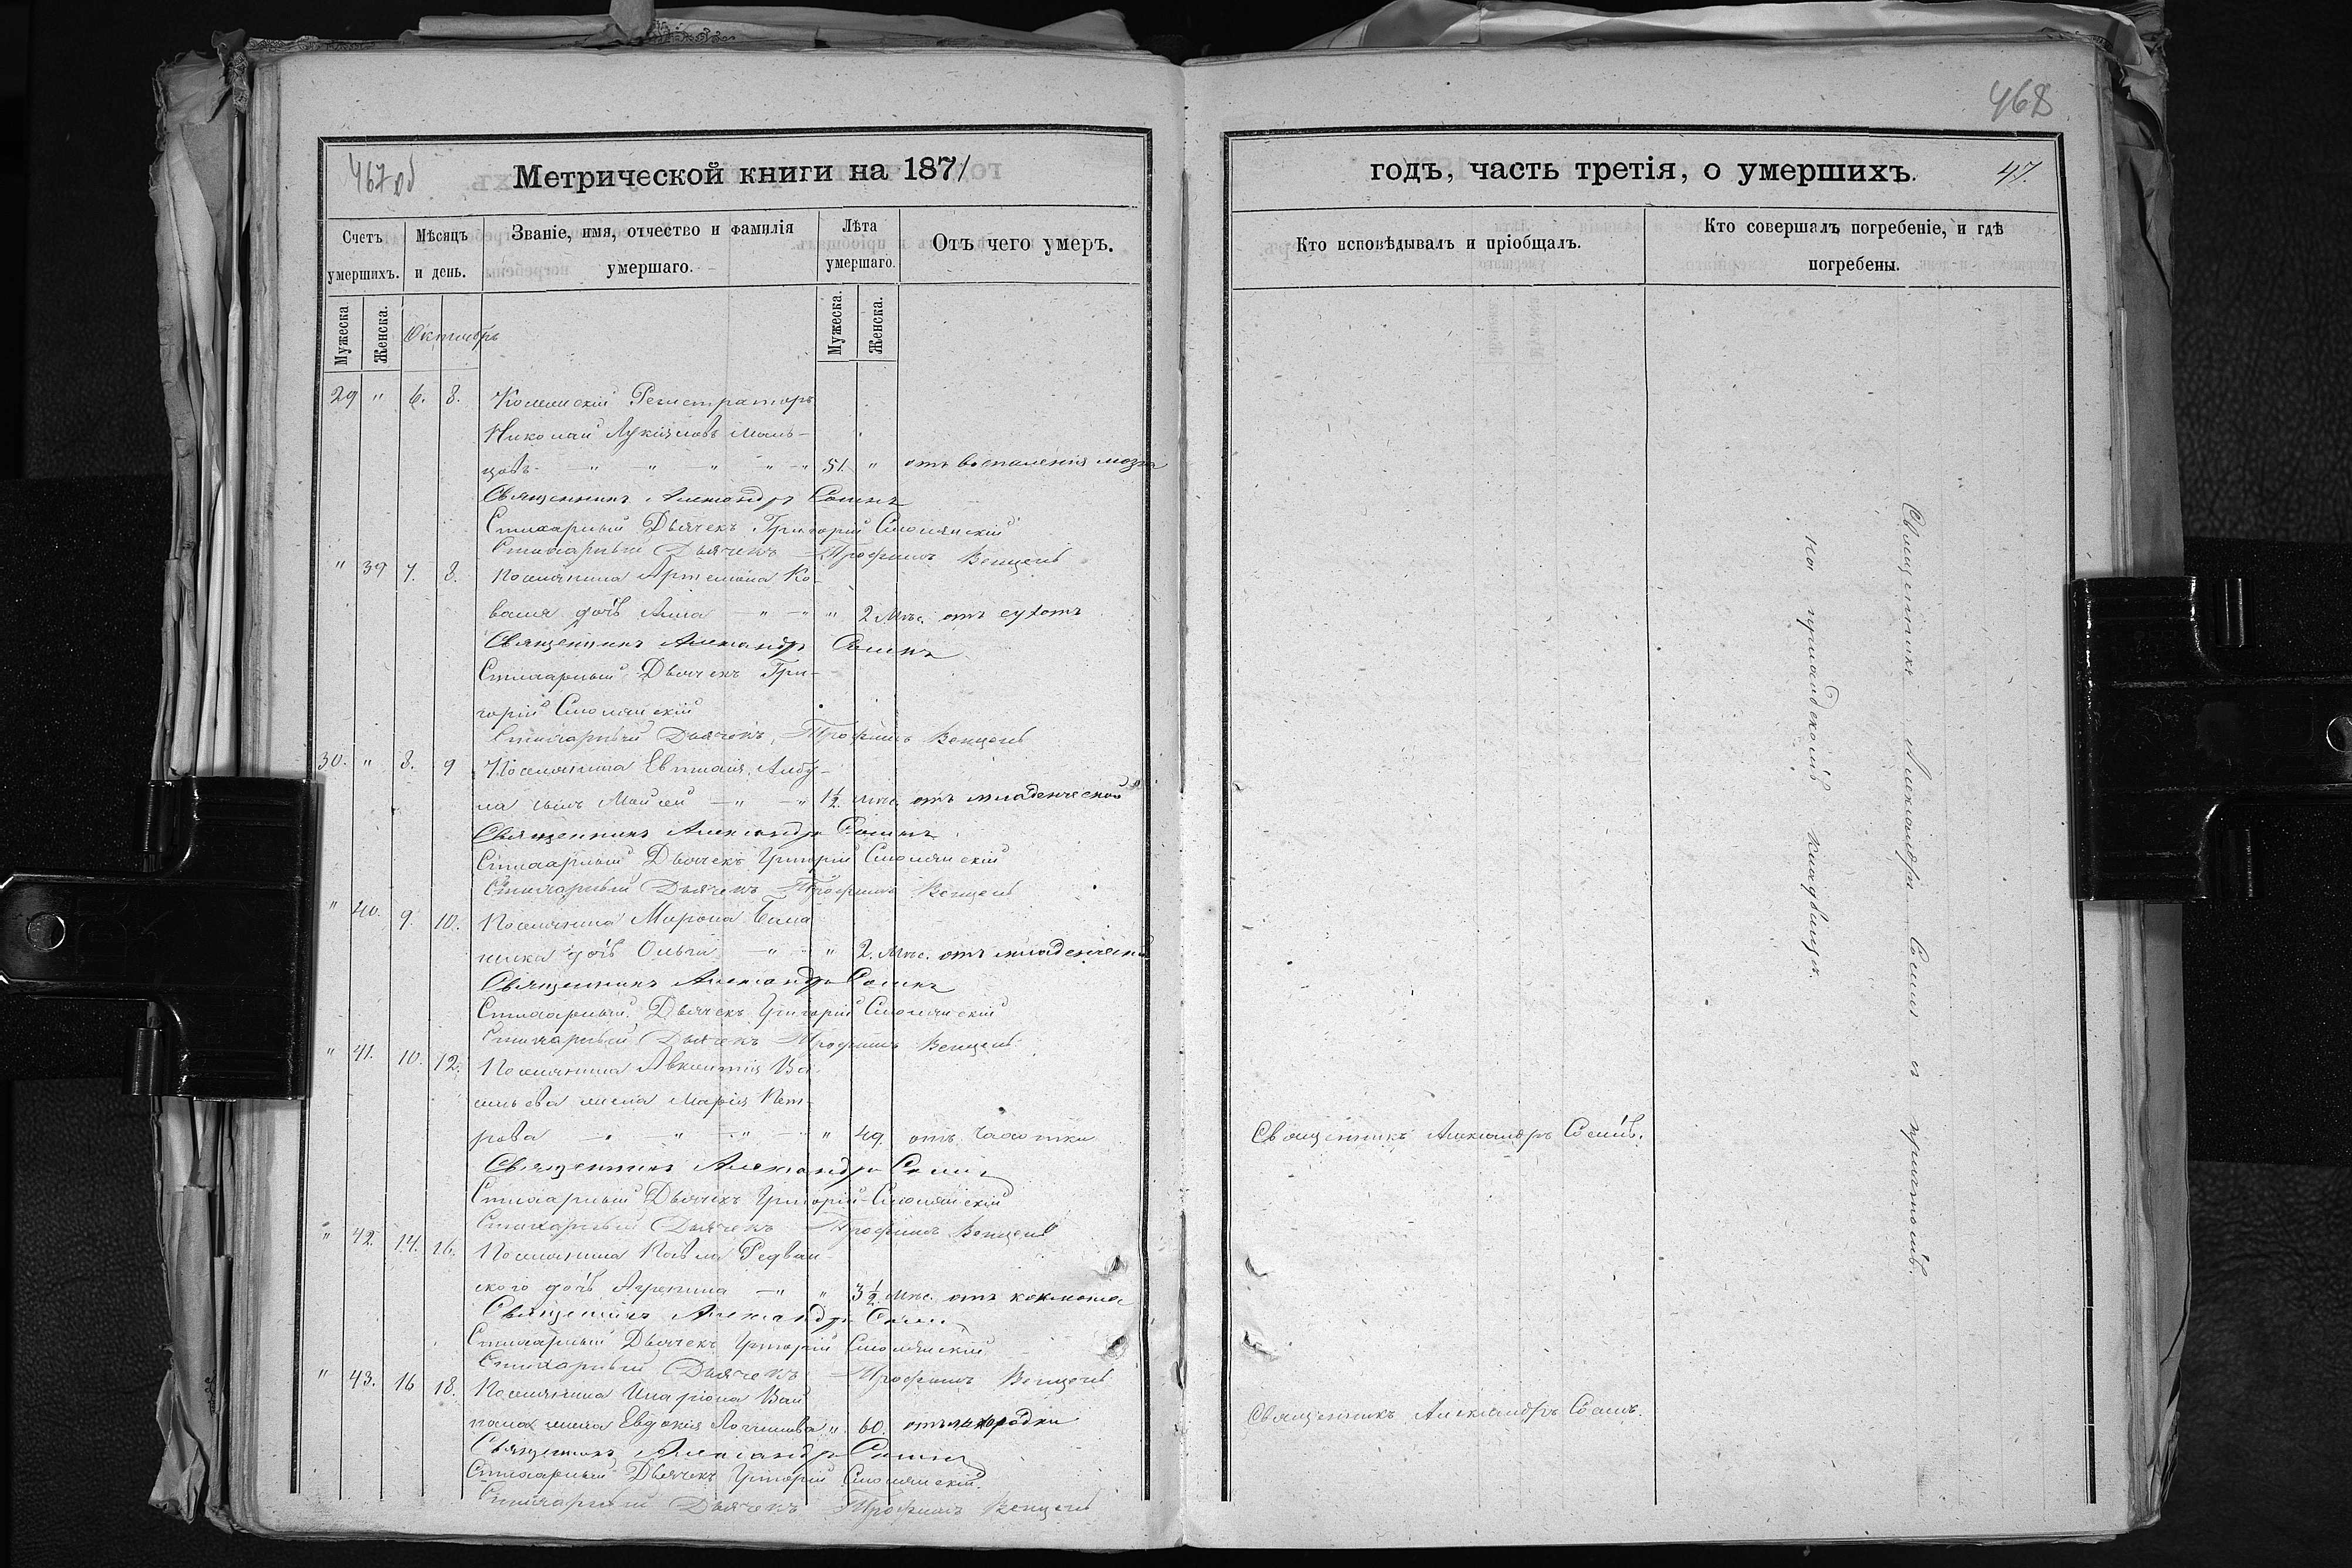 467 об
Метрической книги на 1871
Счетъ умершихъ.
Мѣсяцъ и день.
Званіе, имя, отчество и фамилія умершаго.
Лѣта умершаго.
Отъ чего умеръ.
Мужеска
Женска.
Октябрь
Мужеска.
Женска.
29 " 6. 8. Коллежскій Регистраторъ
Николай Лукіяновъ Маль-
цовъ — " — " " " — " 51. " отъ воспаленія мозга
Священникъ Александръ
Стихарный Дьячекъ Григорій Смолянскій
Стихарный Дьячекъ Трофимъ Венцель
" 39 7. 8. Поселянина Артемона Ко-
валя дочь Анна — " — " " 2 Мѣс. отъ сухотъ
Священникъ Александръ
Стихарный Дьячекъ Гри-
горій Смолянскій
Стихарный Дьячекъ Трофимъ Венцель
30. " 8. 9 Поселянина
на сынъ Мойсей — " — " 1½ Мѣс. отъ младенческой
Священникъ Александръ
Стихарный Дьячекъ Григорій Смолянскій
Стихарный Дьячекъ Трофимъ Венцель
" 40. 9. 10. Поселянина Мирона
дочь Ольга — " — " " 2. Мѣс. отъ младенческой
Священникъ Александръ
Стихарный Дьячекъ Григорій Смолянскій
Стихарный Дьячекъ Трофимъ Венцель
" 41. 10. 12. Поселянина Ва-
сильева жена Марія Пет-
рова — " — " — " — " " 49 отъ чахотки
Священникъ Александръ
Стихарный Дьячекъ Григорій Смолянскій
Стихарный Дьячекъ Трофимъ Венцель
" 42. 14. 16. Поселянина Павла Редван-
ского дочь Агрепина — " " 3½ Мѣс. отъ коклюша
Священникъ Александръ
Стихарный Дьячекъ Григорій Смолянскій
Стихарный Дьячекъ Трофимъ Венцель
" 43. 16 18. Поселянина Иларіона
жена Евдокія " 60. отъ лихорадки
Священникъ Александръ
Стихарный Дьячекъ Григорій Смолянскій.
Стихарный Дьячекъ Трофимъ Венцель
468
годъ, часть третія, о умершихъ. 47.
Кто исповѣдывалъ и пріобщалъ.
Кто совершалъ погребеніе, и гдѣ погребены.
Священникъ Александръ
Священникъ Александръ
Священникъ Александръ съ причтомъ
на приходскомъ кладбищѣ.